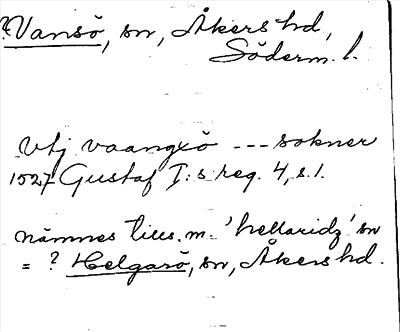 ?Vansö, sn, Åkers hd,
Söderm. l.
Utj vaangxö --- sokner
1527 Gustaf I:s reg. 4, s. 1.
nämnes tills. m. 'hellaridz' sn
= ? Helgarö, sn, Åkers hd.